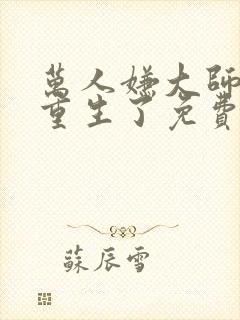 萬人嫌大師
重生了免費
蘇辰雪